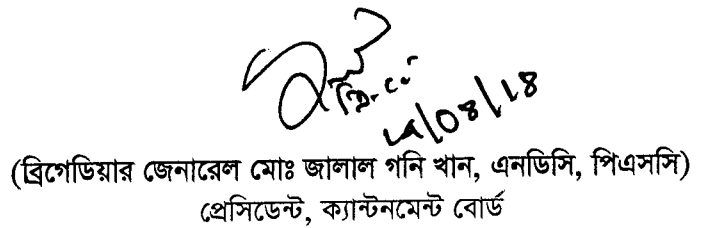 (ব্রিগেডিয়ার জেনারেল মোঃ জালাল গনি খান, এনডিসি, পিএসসি)
প্রেসিডেন্ট, ক্যান্টনমেন্ট বোর্ড